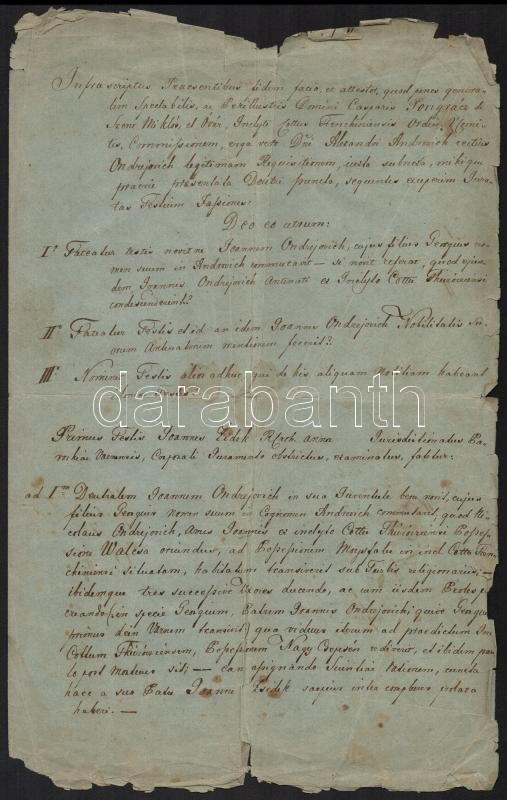 Infrascriptus Praesentibus fidem facio, et attestor, quod penes genero-
sam Spectabilis, ac Perillustris Domini Casparis Pongrácz de
Szent Miklós, et Óvár, Inclyti Cottus Trenchiniensis Ordin. V Comi-
tis, Commissionem, erga vero Dni Alexandri Androvich rectius
Ondrejovich legitimam Requisitionem, iuxta subnexa, mihique
praevie praesentata Deutri puncta, sequentes exceperim Jura-
tas Testium Fassiones:
Deo eo utrum:
Imo Fateatur testis noverit ne Joannem Ondrejovich, cujus filius Georgius no-
men suum in Androvich commutavit — si novit referat, quod ejus-
dem Joannis Ondrejovich Antenati ex Inclyto Cottu Thurócziensi
condescenderint?
IIdo Fateatur Testis et id an idem Joannes Ondrejovich Nobilitatis su-
orum Antenatorum mentionem fecerit?
IIItio Nominet Testis alios adhuc qui de his aliquam notitiam habeant
darabanth
Primus Testis Joannes R. Cath. anno Jurisdictionatus
Corporali Juramento obstrictus, examinatus, fatetur:
ad Imum Joannem Ondrejovich in sua Juventute bene novit, cujus
filius Georgius nomen suum in Cognomen Androvich commutavit, quod Ni-
colaus Ondrejovich, Avus Joannis ex inclyto Cottu Thurócziensi Posses-
sione Valcsa oriundus, ad Possessionem in incl. Cottu Tren-
chiniensi situatam, habitatum transiverit sub religionariis; —
ibidemque tres successive Uxores ducendo, ac cum iisdem Proles pro-
creando in specie Georgium, Patrem Joannis Ondrejovich; quive Georgius
transivit qua viduus iterum ad praedictum In.
Cottum Thurócziensem, Possessionem Nagy Csepcsén rediverit, et ibidem pau-
lo post mortuus sit; — causam assignando scientiae rationem, cuncta
haec a suo Patre Joanne saepius inter complures prolata
haberi. —